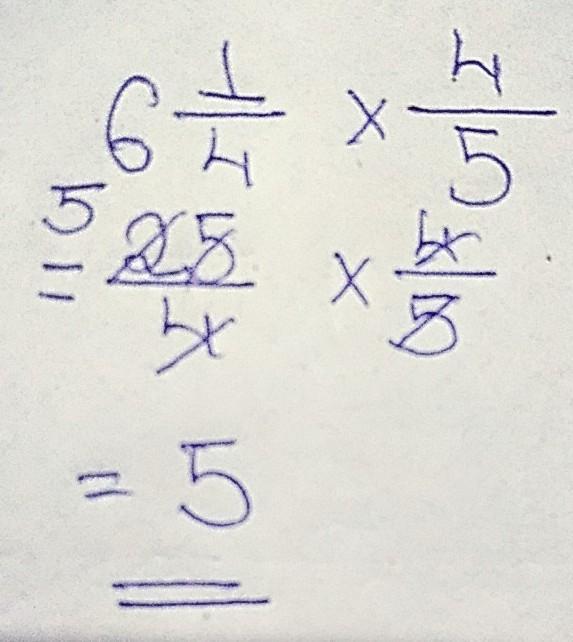 6 1/4 × 4/5
5
= 25/4 × 4/5
= 5